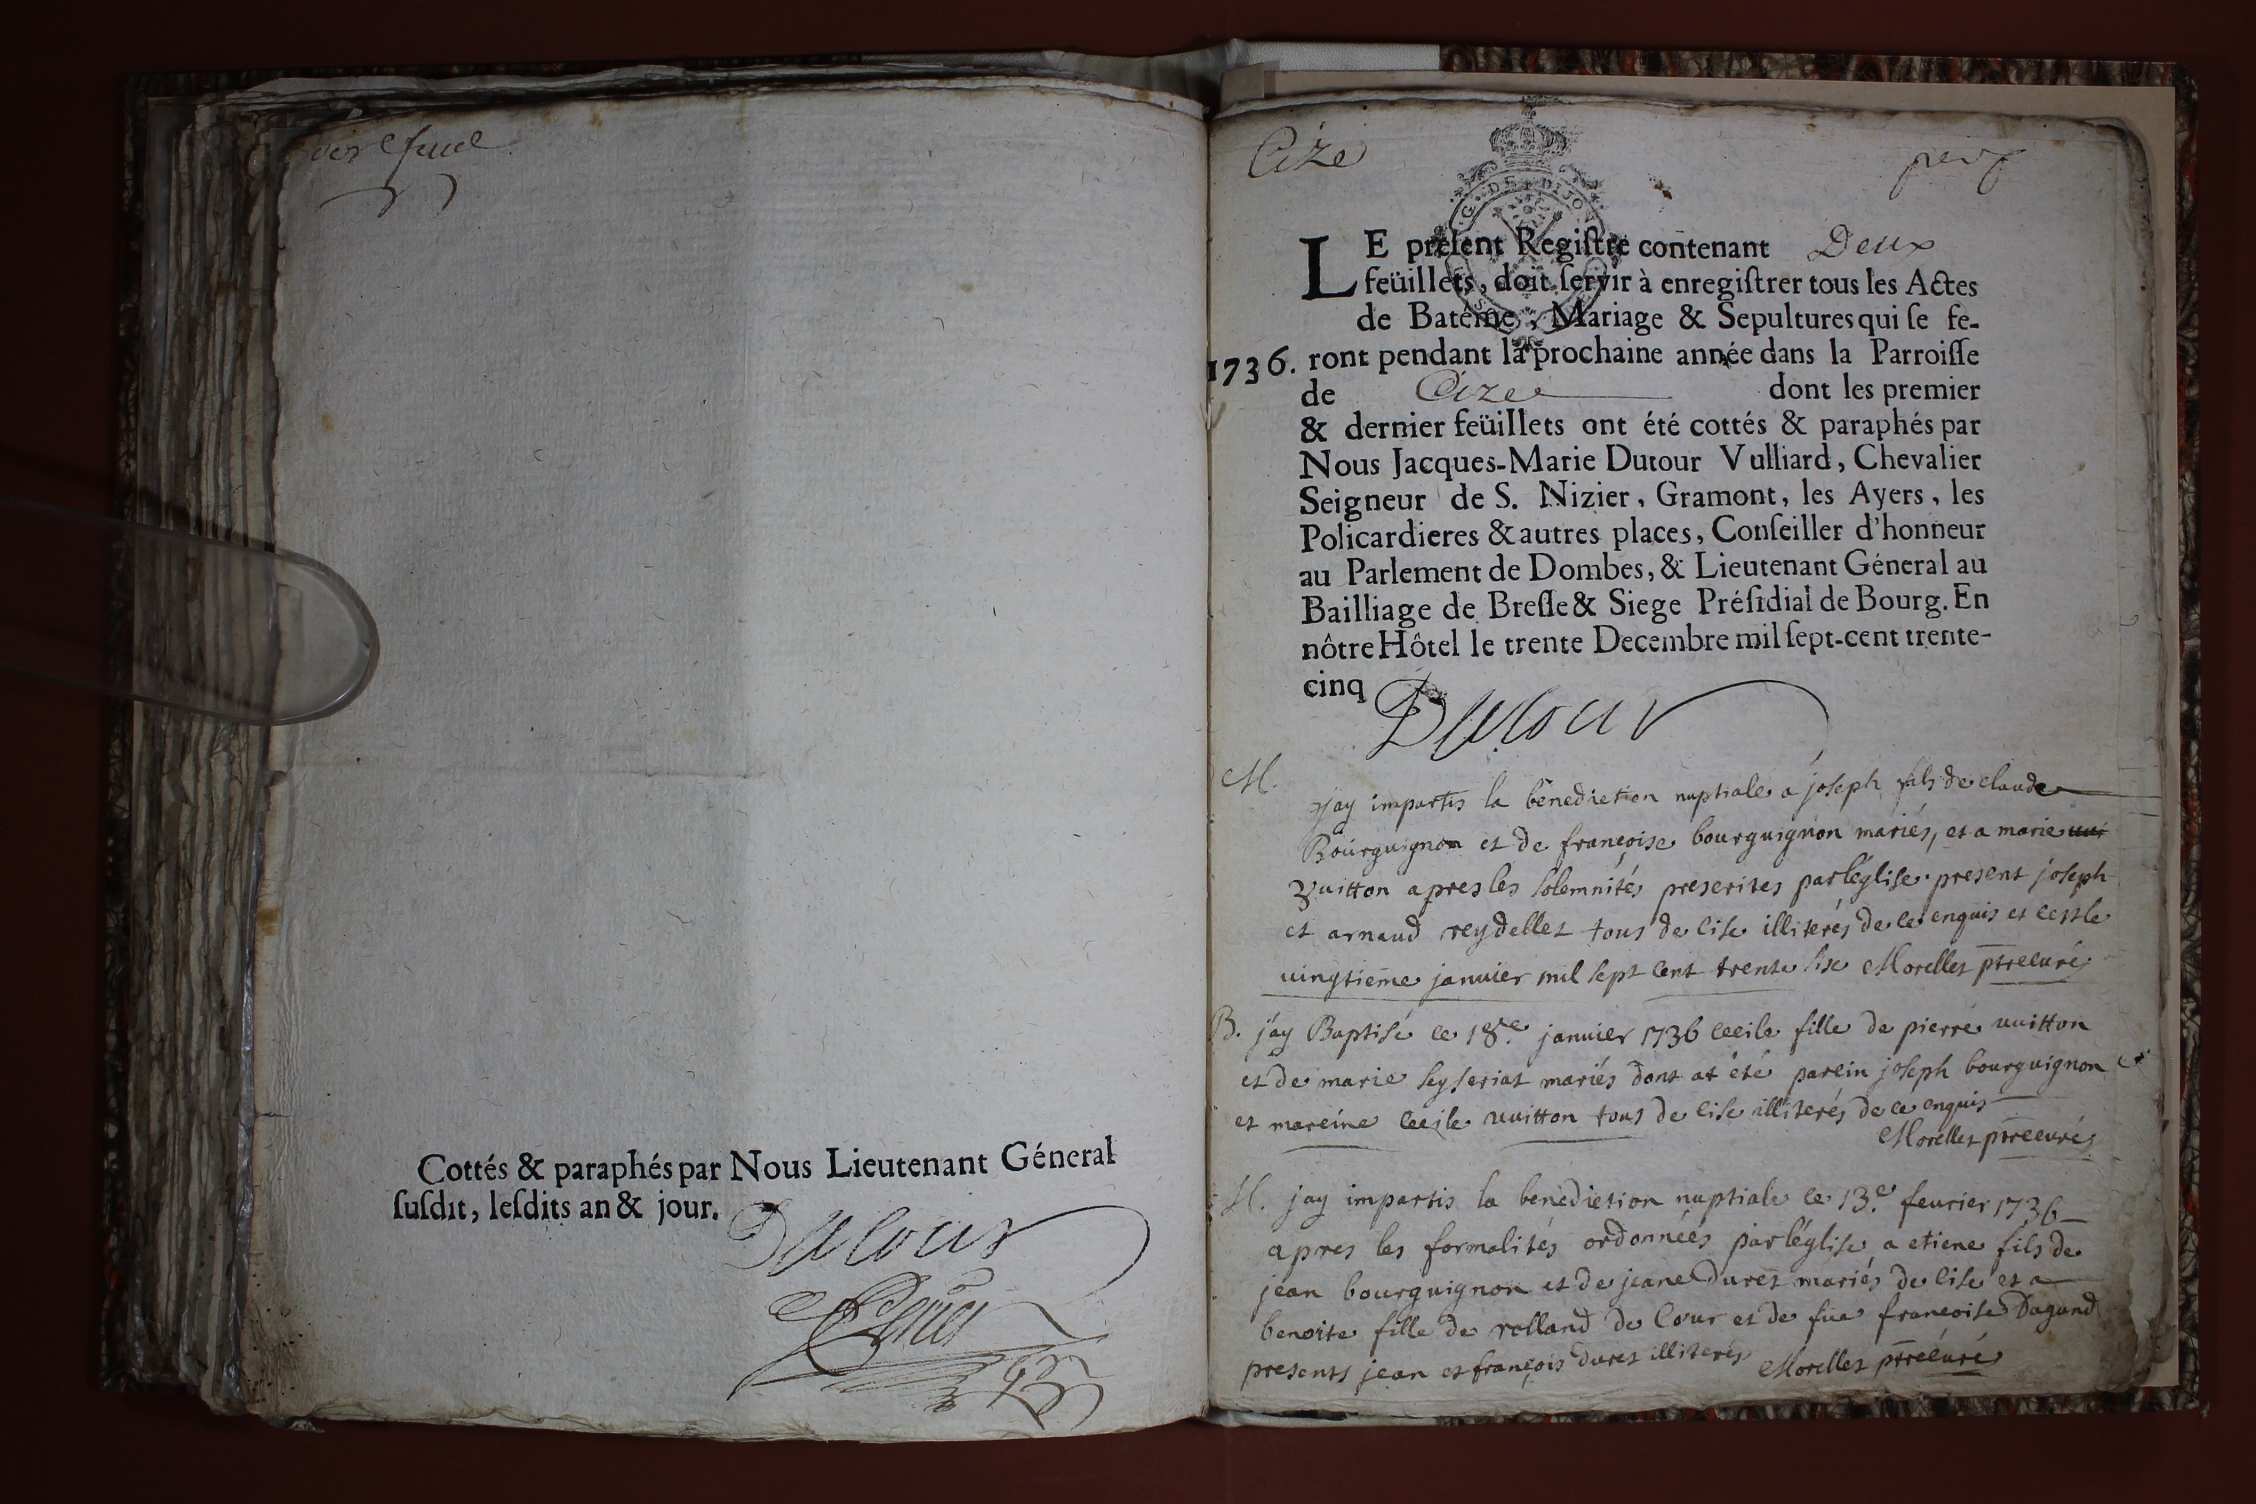 Cottés & paraphés par Nous Lieutenant Géneral
susdit, lesdits an & jour.
Dutour
Cize
G. DE DIJON
LE present Registre contenant Deux
feüillets, doit servir à enregistrer tous les Actes
de Batême, Mariage & Sepultures qui se fe-
1736. ront pendant la prochaine année dans la Parroisse
de Cize dont les premier
& dernier feüillets ont été cottés & paraphés par
Nous Jacques-Marie Dutour Vulliard, Chevalier
Seigneur de S. Nizier, Gramont, les Ayers, les
Policardieres & autres places, Conseiller d'honneur
au Parlement de Dombes, & Lieutenant Géneral au
Bailliage de Bresse & Siege Présidial de Bourg. En
nôtre Hôtel le trente Decembre mil sept-cent trente-
cinq
Dutour
M. jay impartis la benediction nuptiale a joseph fils de claude
Bourguignon et de françoise bourguignon mariés, et a marie
vuitton apres les solemnités prescrites par léglise present joseph
et arnaud reydellet tous de cise illiterés de ce enquis et cest le
vingtieme janvier mil sept cent trente six Morellet ptre curé
B. jay Baptisé ce 18e janvier 1736 cecile fille de pierre vuitton
et de marie seyseriat mariés dont at été parein joseph bourguignon
et mareine cecile vuitton tous de cise illiterés de ce enquis
Morellet ptre curé
M. jay impartis la benediction nuptiale ce 13e fevrier 1736
apres les formalités ordonnées par léglise a etiene fils de
jean bourguignon et de jeane Duret mariés de cise et a
benoite fille de rolland de Cour et de füe françoise Dagand
presents jean et françois Duret illiterés Morellet ptre curé